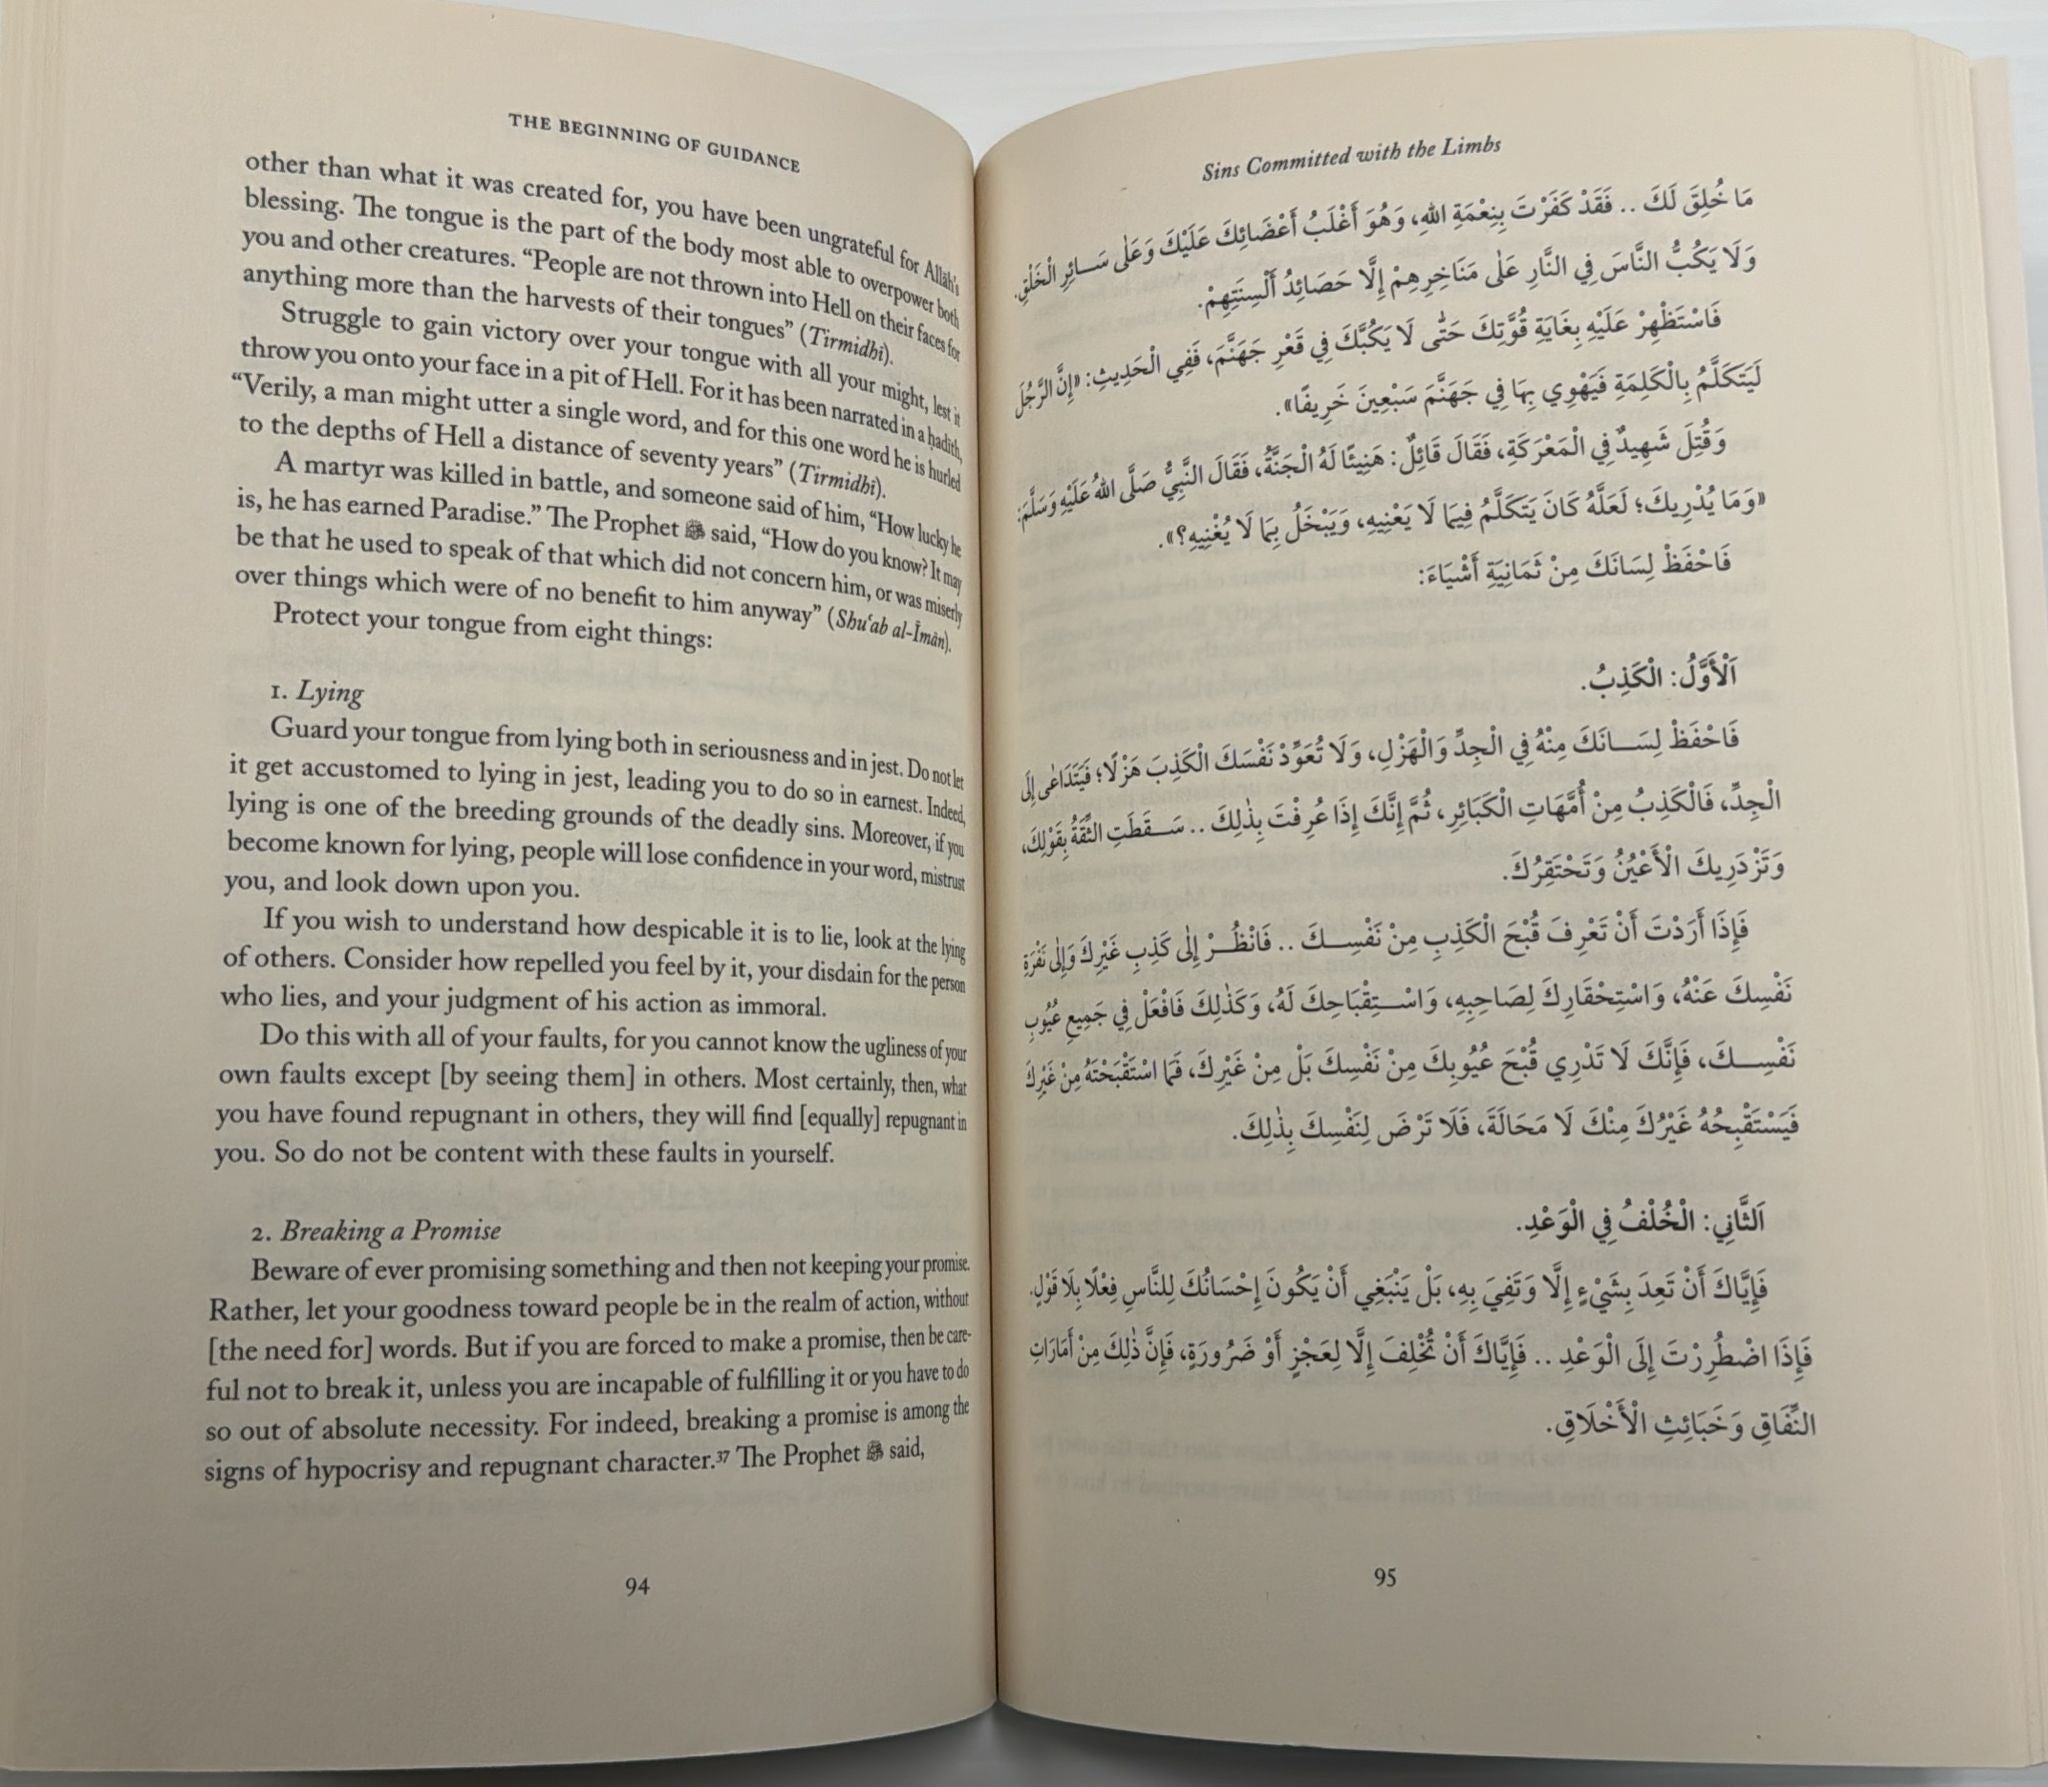 THE BEGINNING OF GUIDANCE
other than what it was created for, you have been ungrateful for Allāh's
blessing. The tongue is the part of the body most able to overpower both
you and other creatures. “People are not thrown into Hell on their faces for
anything more than the harvests of their tongues” (Tirmidhī).
Struggle to gain victory over your tongue with all your might, lest it
throw you onto your face in a pit of Hell. For it has been narrated in a ḥadīth,
“Verily, a man might utter a single word, and for this one word he is hurled
to the depths of Hell a distance of seventy years” (Tirmidhī).
A martyr was killed in battle, and someone said of him, “How lucky he
is, he has earned Paradise.” The Prophet ﷺ said, “How do you know? It may
be that he used to speak of that which did not concern him, or was miserly
over things which were of no benefit to him anyway” (Shuʿab al-Īmān).
Protect your tongue from eight things:
1. Lying
Guard your tongue from lying both in seriousness and in jest. Do not let
it get accustomed to lying in jest, leading you to do so in earnest. Indeed,
lying is one of the breeding grounds of the deadly sins. Moreover, if you
become known for lying, people will lose confidence in your word, mistrust
you, and look down upon you.
If you wish to understand how despicable it is to lie, look at the lying
of others. Consider how repelled you feel by it, your disdain for the person
who lies, and your judgment of his action as immoral.
Do this with all of your faults, for you cannot know the ugliness of your
own faults except [by seeing them] in others. Most certainly, then, what
you have found repugnant in others, they will find [equally] repugnant in
you. So do not be content with these faults in yourself.
2. Breaking a Promise
Beware of ever promising something and then not keeping your promise.
Rather, let your goodness toward people be in the realm of action, without
[the need for] words. But if you are forced to make a promise, then be care-
ful not to break it, unless you are incapable of fulfilling it or you have to do
so out of absolute necessity. For indeed, breaking a promise is among the
signs of hypocrisy and repugnant character.³⁷ The Prophet ﷺ said,
94
Sins Committed with the Limbs
مَا خُلِقَ لَكَ .. فَقَدْ كَفَرْتَ بِنِعْمَةِ اللهِ، وَهُوَ أَغْلَبُ أَعْضَائِكَ عَلَيْكَ وَعَلَى سَائِرِ الْخَلْقِ.
وَلَا يَكُبُّ النَّاسَ فِي النَّارِ عَلَى مَنَاخِرِهِمْ إِلَّا حَصَائِدُ أَلْسِنَتِهِمْ.
فَاسْتَظْهِرْ عَلَيْهِ بِغَايَةِ قُوَّتِكَ حَتَّى لَا يَكُبَّكَ فِي قَعْرِ جَهَنَّمَ، فَفِي الْحَدِيثِ: «إِنَّ الرَّجُلَ
لَيَتَكَلَّمُ بِالْكَلِمَةِ فَيَهْوِي بِهَا فِي جَهَنَّمَ سَبْعِينَ خَرِيفًا».
وَقُتِلَ شَهِيدٌ فِي الْمَعْرَكَةِ، فَقَالَ قَائِلٌ: هَنِيئًا لَهُ الْجَنَّةُ، فَقَالَ النَّبِيُّ صَلَّى اللهُ عَلَيْهِ وَسَلَّمَ:
«وَمَا يُدْرِيكَ؛ لَعَلَّهُ كَانَ يَتَكَلَّمُ فِيمَا لَا يَعْنِيهِ، وَيَبْخَلُ بِمَا لَا يُغْنِيهِ؟».
فَاحْفَظْ لِسَانَكَ مِنْ ثَمَانِيَةِ أَشْيَاءَ:
اَلْأَوَّلُ: الْكَذِبُ.
فَاحْفَظْ لِسَانَكَ مِنْهُ فِي الْجِدِّ وَالْهَزْلِ، وَلَا تُعَوِّدْ نَفْسَكَ الْكَذِبَ هَزْلًا؛ فَيَتَدَاعَى إِلَى
الْجِدِّ، فَالْكَذِبُ مِنْ أُمَّهَاتِ الْكَبَائِرِ، ثُمَّ إِنَّكَ إِذَا عُرِفْتَ بِذٰلِكَ .. سَقَطَتِ الثِّقَةُ بِقَوْلِكَ،
وَتَزْدَرِيكَ الْأَعْيُنُ وَتَحْتَقِرُكَ.
فَإِذَا أَرَدْتَ أَنْ تَعْرِفَ قُبْحَ الْكَذِبِ مِنْ نَفْسِكَ .. فَانْظُرْ إِلَى كَذِبِ غَيْرِكَ وَإِلَى نَفْرَةِ
نَفْسِكَ عَنْهُ، وَاسْتِحْقَارِكَ لِصَاحِبِهِ، وَاسْتِقْبَاحِكَ لَهُ، وَكَذٰلِكَ فَافْعَلْ فِي جَمِيعِ عُيُوبِ
نَفْسِكَ، فَإِنَّكَ لَا تَدْرِي قُبْحَ عُيُوبِكَ مِنْ نَفْسِكَ بَلْ مِنْ غَيْرِكَ، فَمَا اسْتَقْبَحْتَهُ مِنْ غَيْرِكَ
فَيَسْتَقْبِحُهُ غَيْرُكَ مِنْكَ لَا مَحَالَةَ، فَلَا تَرْضَ لِنَفْسِكَ بِذٰلِكَ.
اَلثَّانِي: الْخُلْفُ فِي الْوَعْدِ.
فَإِيَّاكَ أَنْ تَعِدَ بِشَيْءٍ إِلَّا وَتَفِيَ بِهِ، بَلْ يَنْبَغِي أَنْ يَكُونَ إِحْسَانُكَ لِلنَّاسِ فِعْلًا بِلَا قَوْلٍ.
فَإِذَا اضْطُرِرْتَ إِلَى الْوَعْدِ .. فَإِيَّاكَ أَنْ تُخْلِفَ إِلَّا لِعَجْزٍ أَوْ ضَرُورَةٍ، فَإِنَّ ذٰلِكَ مِنْ أَمَارَاتِ
النِّفَاقِ وَخَبَائِثِ الْأَخْلَاقِ.
95